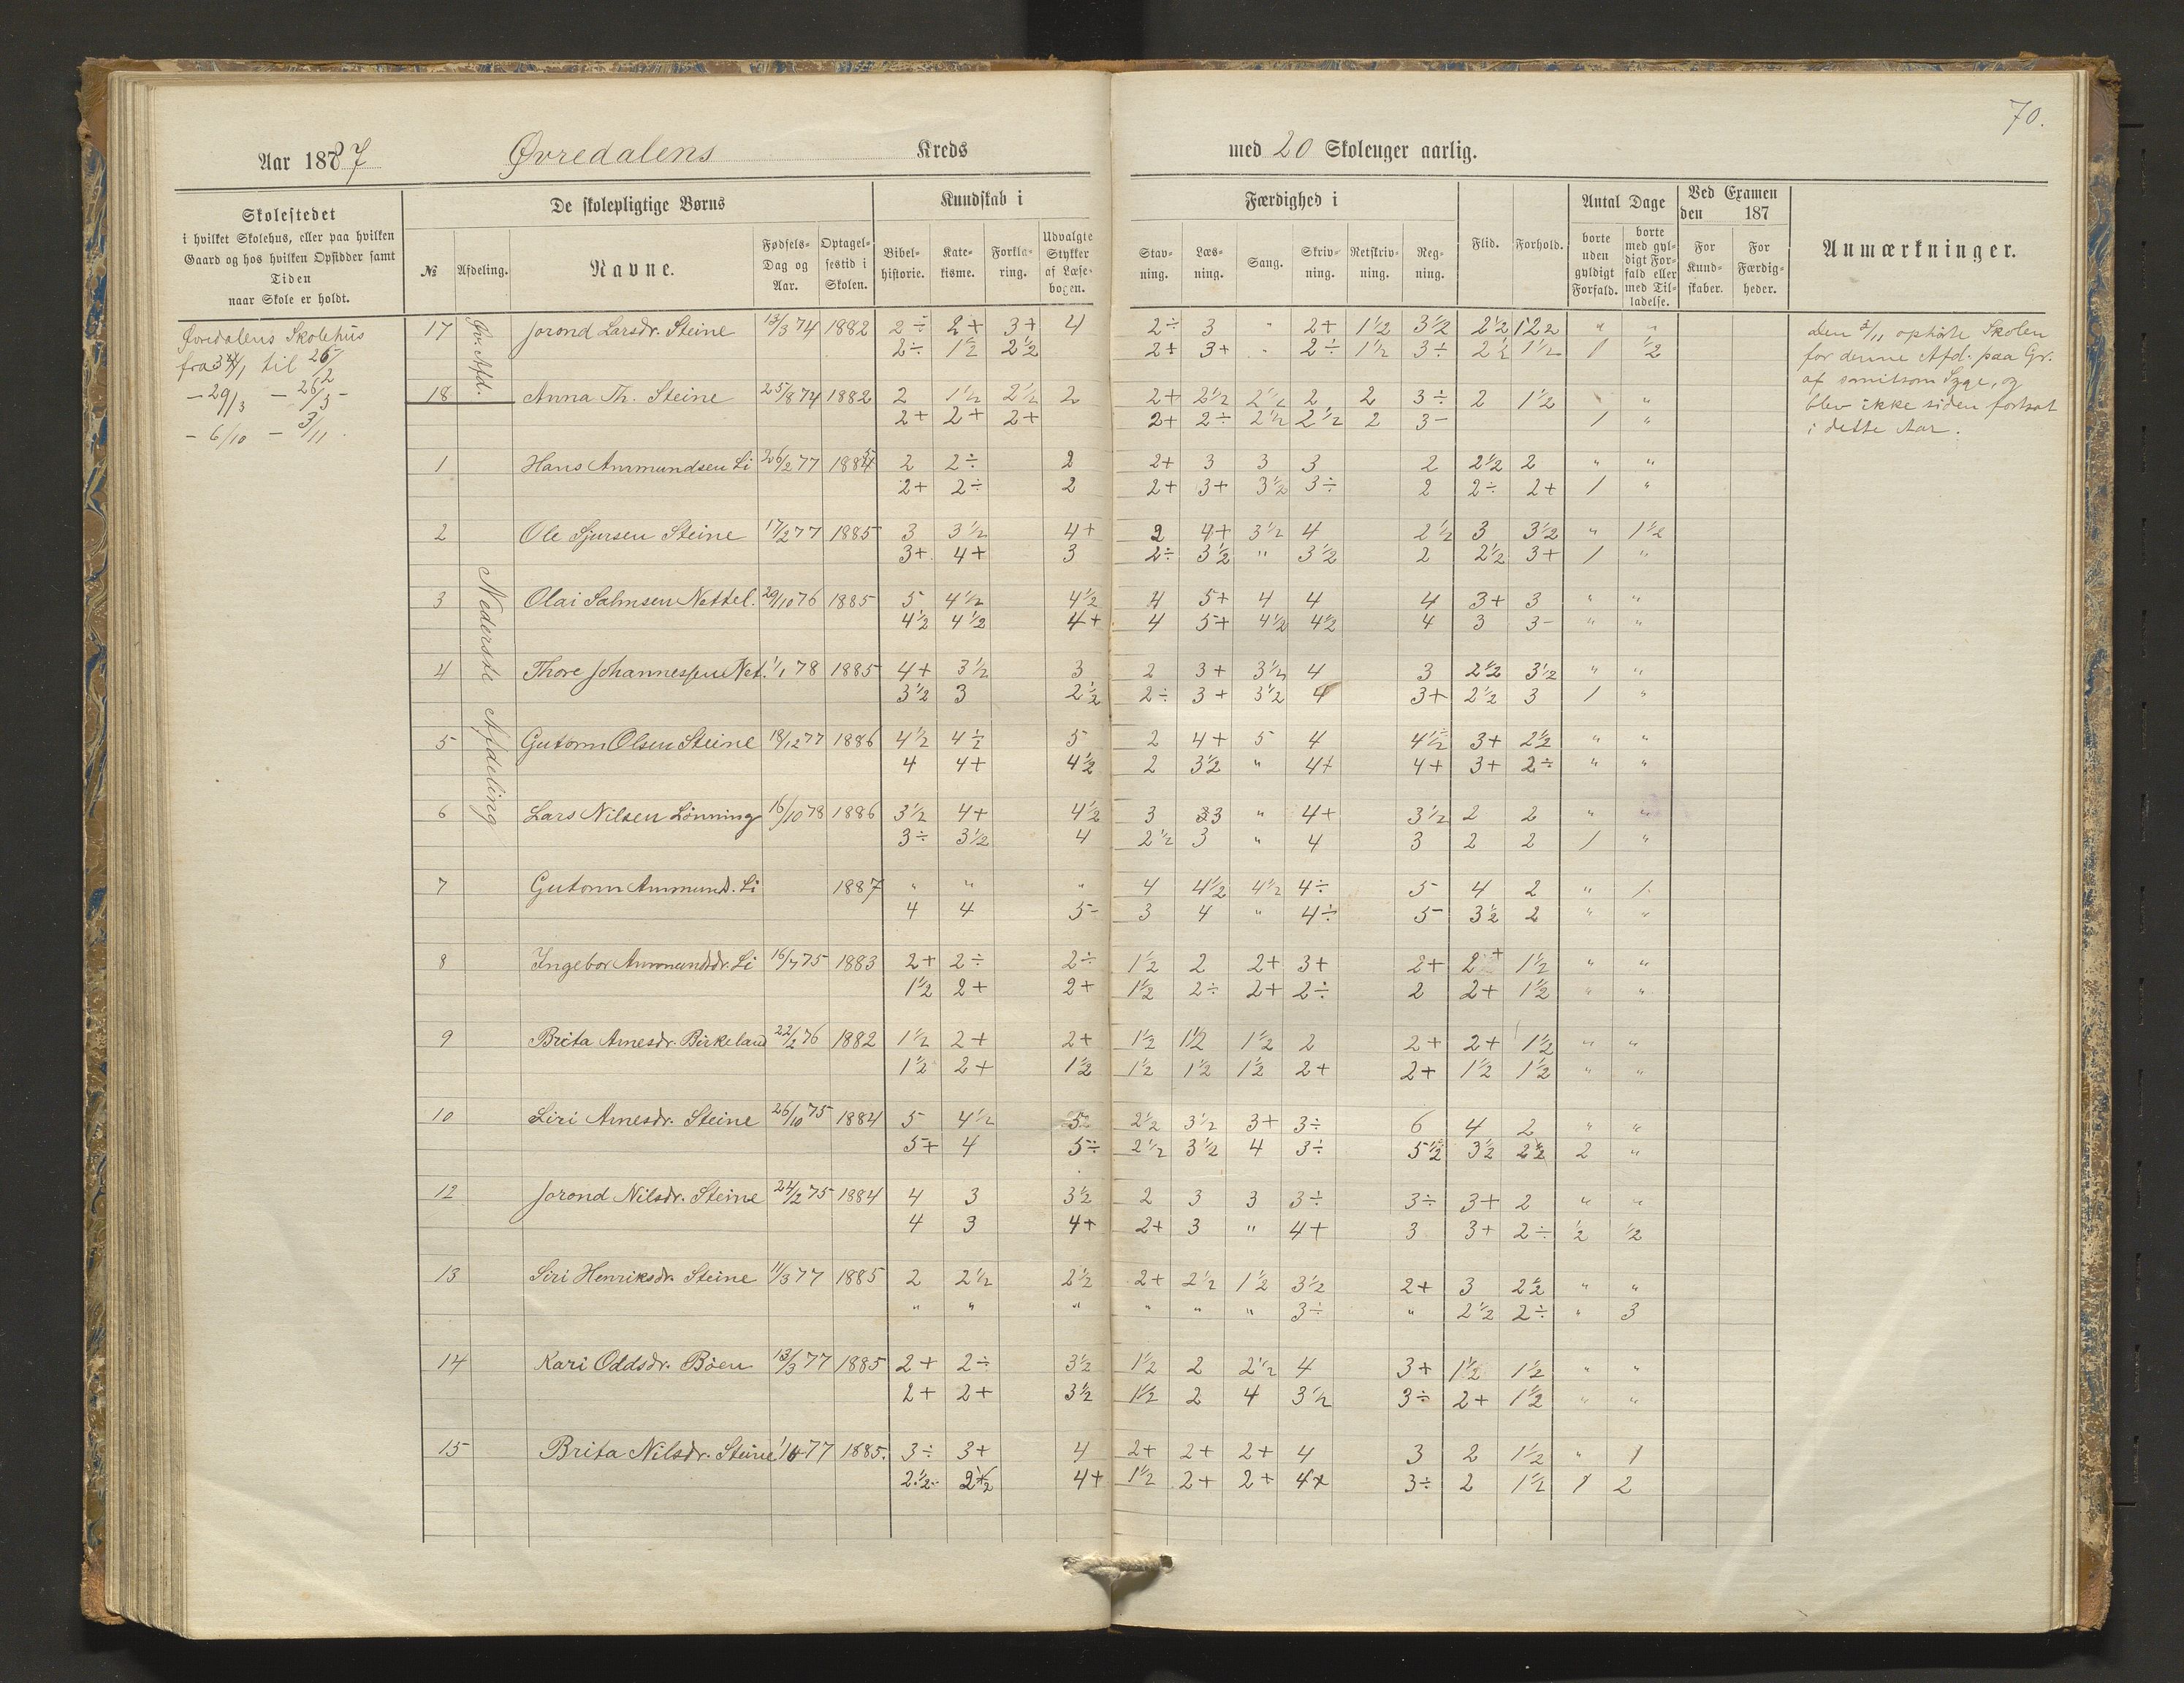 70.
Aar 1887 Øvredalens Kreds med 20 Skoleuger aarlig.
Skolestedet
i hvilket Skolehus, eller paa hvilken
Gaard og hos hvilken Opsidder samt
Tiden
naar Skole er holdt.
De skolepligtige Børns
№ Afdeling. Navne. Fødsels-Dag og Aar. Optagelsestid i Skolen.
Kundskab i
Bibelhistorie. Katekisme. Forklaring. Udvalgte Stykker af Læsebogen.
Færdighed i
Stavning. Læsning. Sang. Skrivning. Retskrivning. Regning. Flid. Forhold.
Antal Dage
borte uden gyldigt Forfald. borte med gyldigt Forfald eller med Tilladelse.
Ved Examen den 187
For Kundskaber. For Færdigheder.
Anmærkninger.
Øvredalens Skolehus
til 26/2
- 29/3 - 26/3 -
- 6/10 - 3/11.
Øv. Afd.
Nederste Afdeling
den 3/11 ophørte Skolen
for denne Afd. paa Gr.
af smitsom Syge, og
blev ikke siden fortsat
i dette Aar.
17 Jorond Larsdr. Steine 13/3 74 1882 2÷ 2+ 3+ 4 2÷ 3 " 2+ 1½ 3½ 2½ " "
2÷ 1½ 2½ 2+ 3+ " 2÷ 1½ 3÷ 2½ 1½ 1 ½
18 Anna Th. Steine 25/8 74 1882 2 1½ 2½ 2 2+ 2½ 2½ 2 2 3÷ 2 1½ "
2+ 2+ 2+ 2+ 2÷ 2½ 2½ 2 3- 1 "
1 Hans Ammundsen Li 26/2 77 2 2÷ 2 2+ 3 3 3 2 2½ 2 " "
2+ 2÷ 2 2+ 3+ 3½ 3÷ 2 2÷ 2+ 1 "
2 Ole Sjursen Steine 17/2 77 1885 3 3½ 4+ 2 4+ 3½ 4 2½ 3 3½ " 1½
3+ 4+ 3 2÷ 3½ " 3½ 2 2½ 3+ 1 "
3 Olai Salmsen Nettel. 29/10 76 1885 5 4½ 4½ 4 5+ 4 4 4 3+ 3 " "
4½ 4½ 4+ 4 5+ 4½ 4½ 4 3 3- " "
4 Thore Johannessen Net. 1/1 78 1885 4+ 3½ 3 2 3+ 3½ 4 3 2½ 3½ " "
3½ 3 2½ 2÷ 3+ 3½ 4 3+ 2½ 3 1 "
5 Gutorm Olsen Steine 18/12 77 1886 4½ 4½ 5 2 4+ 5 4 4½ 3+ 2½ " "
4 4+ 4½ 2 3½ " 4+ 4+ 3+ 2÷ " "
6 Lars Nilsen Lønning 16/10 78 1886 3½ 4+ 4½ 3 3 " 4+ 3½ 2 2 " "
3÷ 3½ 4 2½ 3 " 4 3 2 2 1 "
7 Gutorm Ammund. Li 1887 " " " 4 4½ 4½ 4÷ 5 4 2 " 1
4 4 5- 3 4 " 4÷ 5- 3½ 2 " "
8 Ingebor Ammundsdr. Li 16/7 75 1883 2+ 2÷ 2÷ 1½ 2 2+ 3+ 2+ 2+ 1½ " "
1½ 2+ 2+ 1½ 2÷ 2+ 2÷ 2 2+ 1½ " "
9 Brita Arnesdr. Birkeland 22/2 76 1882 1½ 2+ 2+ 1½ 1½ 1½ 2 2+ 2+ 1½ " "
1½ 2+ 1½ 1½ 1½ 1½ 2+ 2+ 1½ 1½ " "
10 Siri Arnesdr. Steine 26/10 75 1884 5 4½ 5 2½ 3½ 3+ 3÷ 6 4 2 " "
5+ 4 5÷ 2½ 3½ 4 3÷ 5½ 3½ 2½ 2 "
12 Jorond Nilsdr. Steine 24/2 75 1884 4 3 3½ 2 3 3 3÷ 3÷ 3+ 2 " "
4 3 4+ 2+ 3 " 4+ 3 3+ 2÷ ½ ½
13 Siri Henriksdr. Steine 11/3 77 1885 2 2½ 2½ 2+ 2½ 1½ 3½ 2+ 3 2½ " "
" " " " " " 3÷ " 2½ 2÷ " 3
14 Kari Oddsdr. Bøen 13/3 77 1885 2+ 2÷ 3½ 1½ 2 2½ 4 3+ 1½ 1½ " "
2+ 2+ 3½ 1½ 2 4 3½ 3÷ 2+ 1½ " "
15 Brita Nilsdr. Steine 77 1885. 3÷ 3+ 4 2+ 2+ 2+ 4 3 2 1½ " 1
2½ 2½ 4+ 1½ 2+ 2+ 4+ 3÷ 2 1½ 1 2